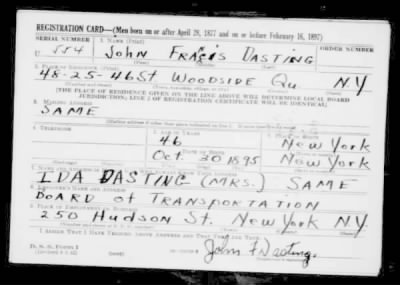 REGISTRATION CARD—(Men born on or after April 28, 1877 and on or before February 16, 1897)
SERIAL NUMBER 1. NAME (Print) ORDER NUMBER
U 554 JOHN FRASIS DASTING
2. PLACE OF RESIDENCE (Print)
48-25-46St WOODSIDE Qu. NY
[THE PLACE OF RESIDENCE GIVEN ON THE LINE ABOVE WILL DETERMINE LOCAL BOARD
JURISDICTION; LINE 2 OF REGISTRATION CERTIFICATE WILL BE IDENTICAL]
3. MAILING ADDRESS
SAME
4. TELEPHONE 5. AGE IN YEARS 6. PLACE OF BIRTH
46 New York
DATE OF BIRTH
Oct. 30 1895 New York
IDA DASTING (MRS.) SAME
8. EMPLOYER'S NAME AND ADDRESS
BOARD of TRANSPORTATION
9. PLACE OF EMPLOYMENT OR BUSINESS
250 Hudson St. New York NY.
I AFFIRM THAT I HAVE VERIFIED ABOVE ANSWERS AND THAT THEY ARE TRUE.
D. S. S. FORM 1
John F Dasting.